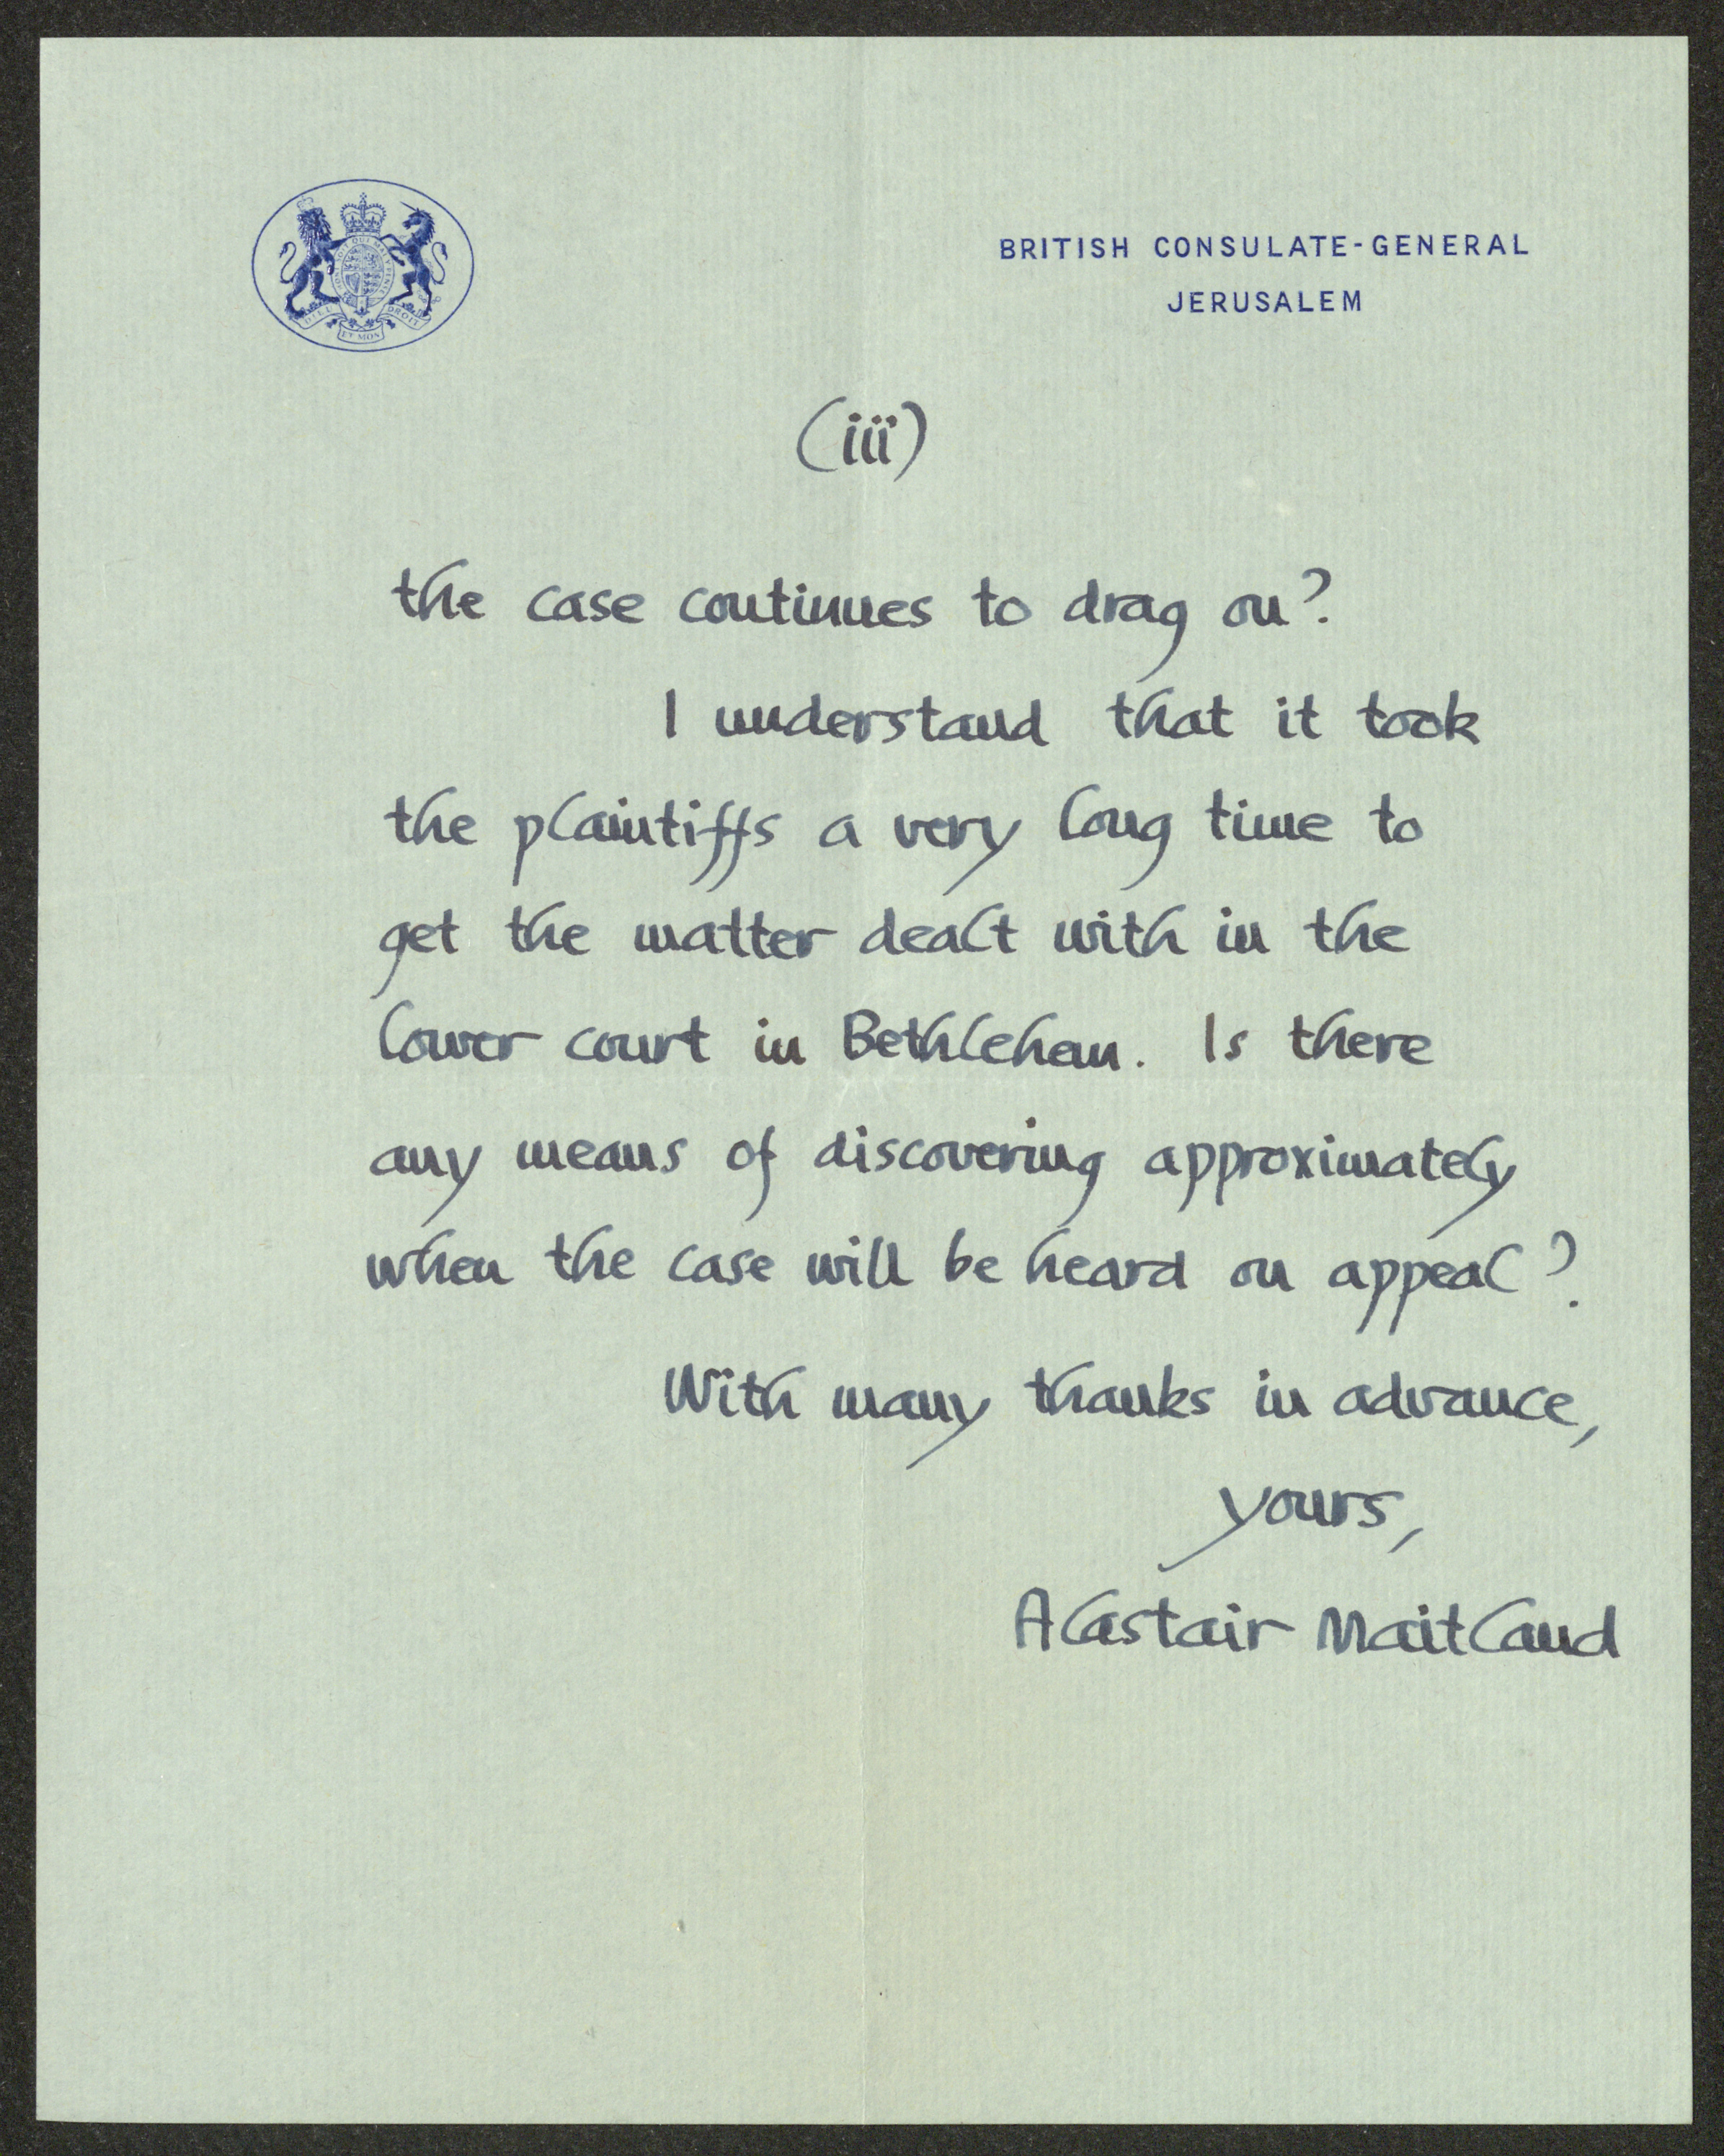 BRITISH CONSULATE-GENERAL
JERUSALEM
(iii)
the case continues to drag on?
I understand that it took
the plaintiffs a very long time to
get the matter dealt with in the
lower court in Bethlehem. Is there
any means of discovering approximately
when the case will be heard on appeal?
With many thanks in advance,
yours,
Alastair Maitland